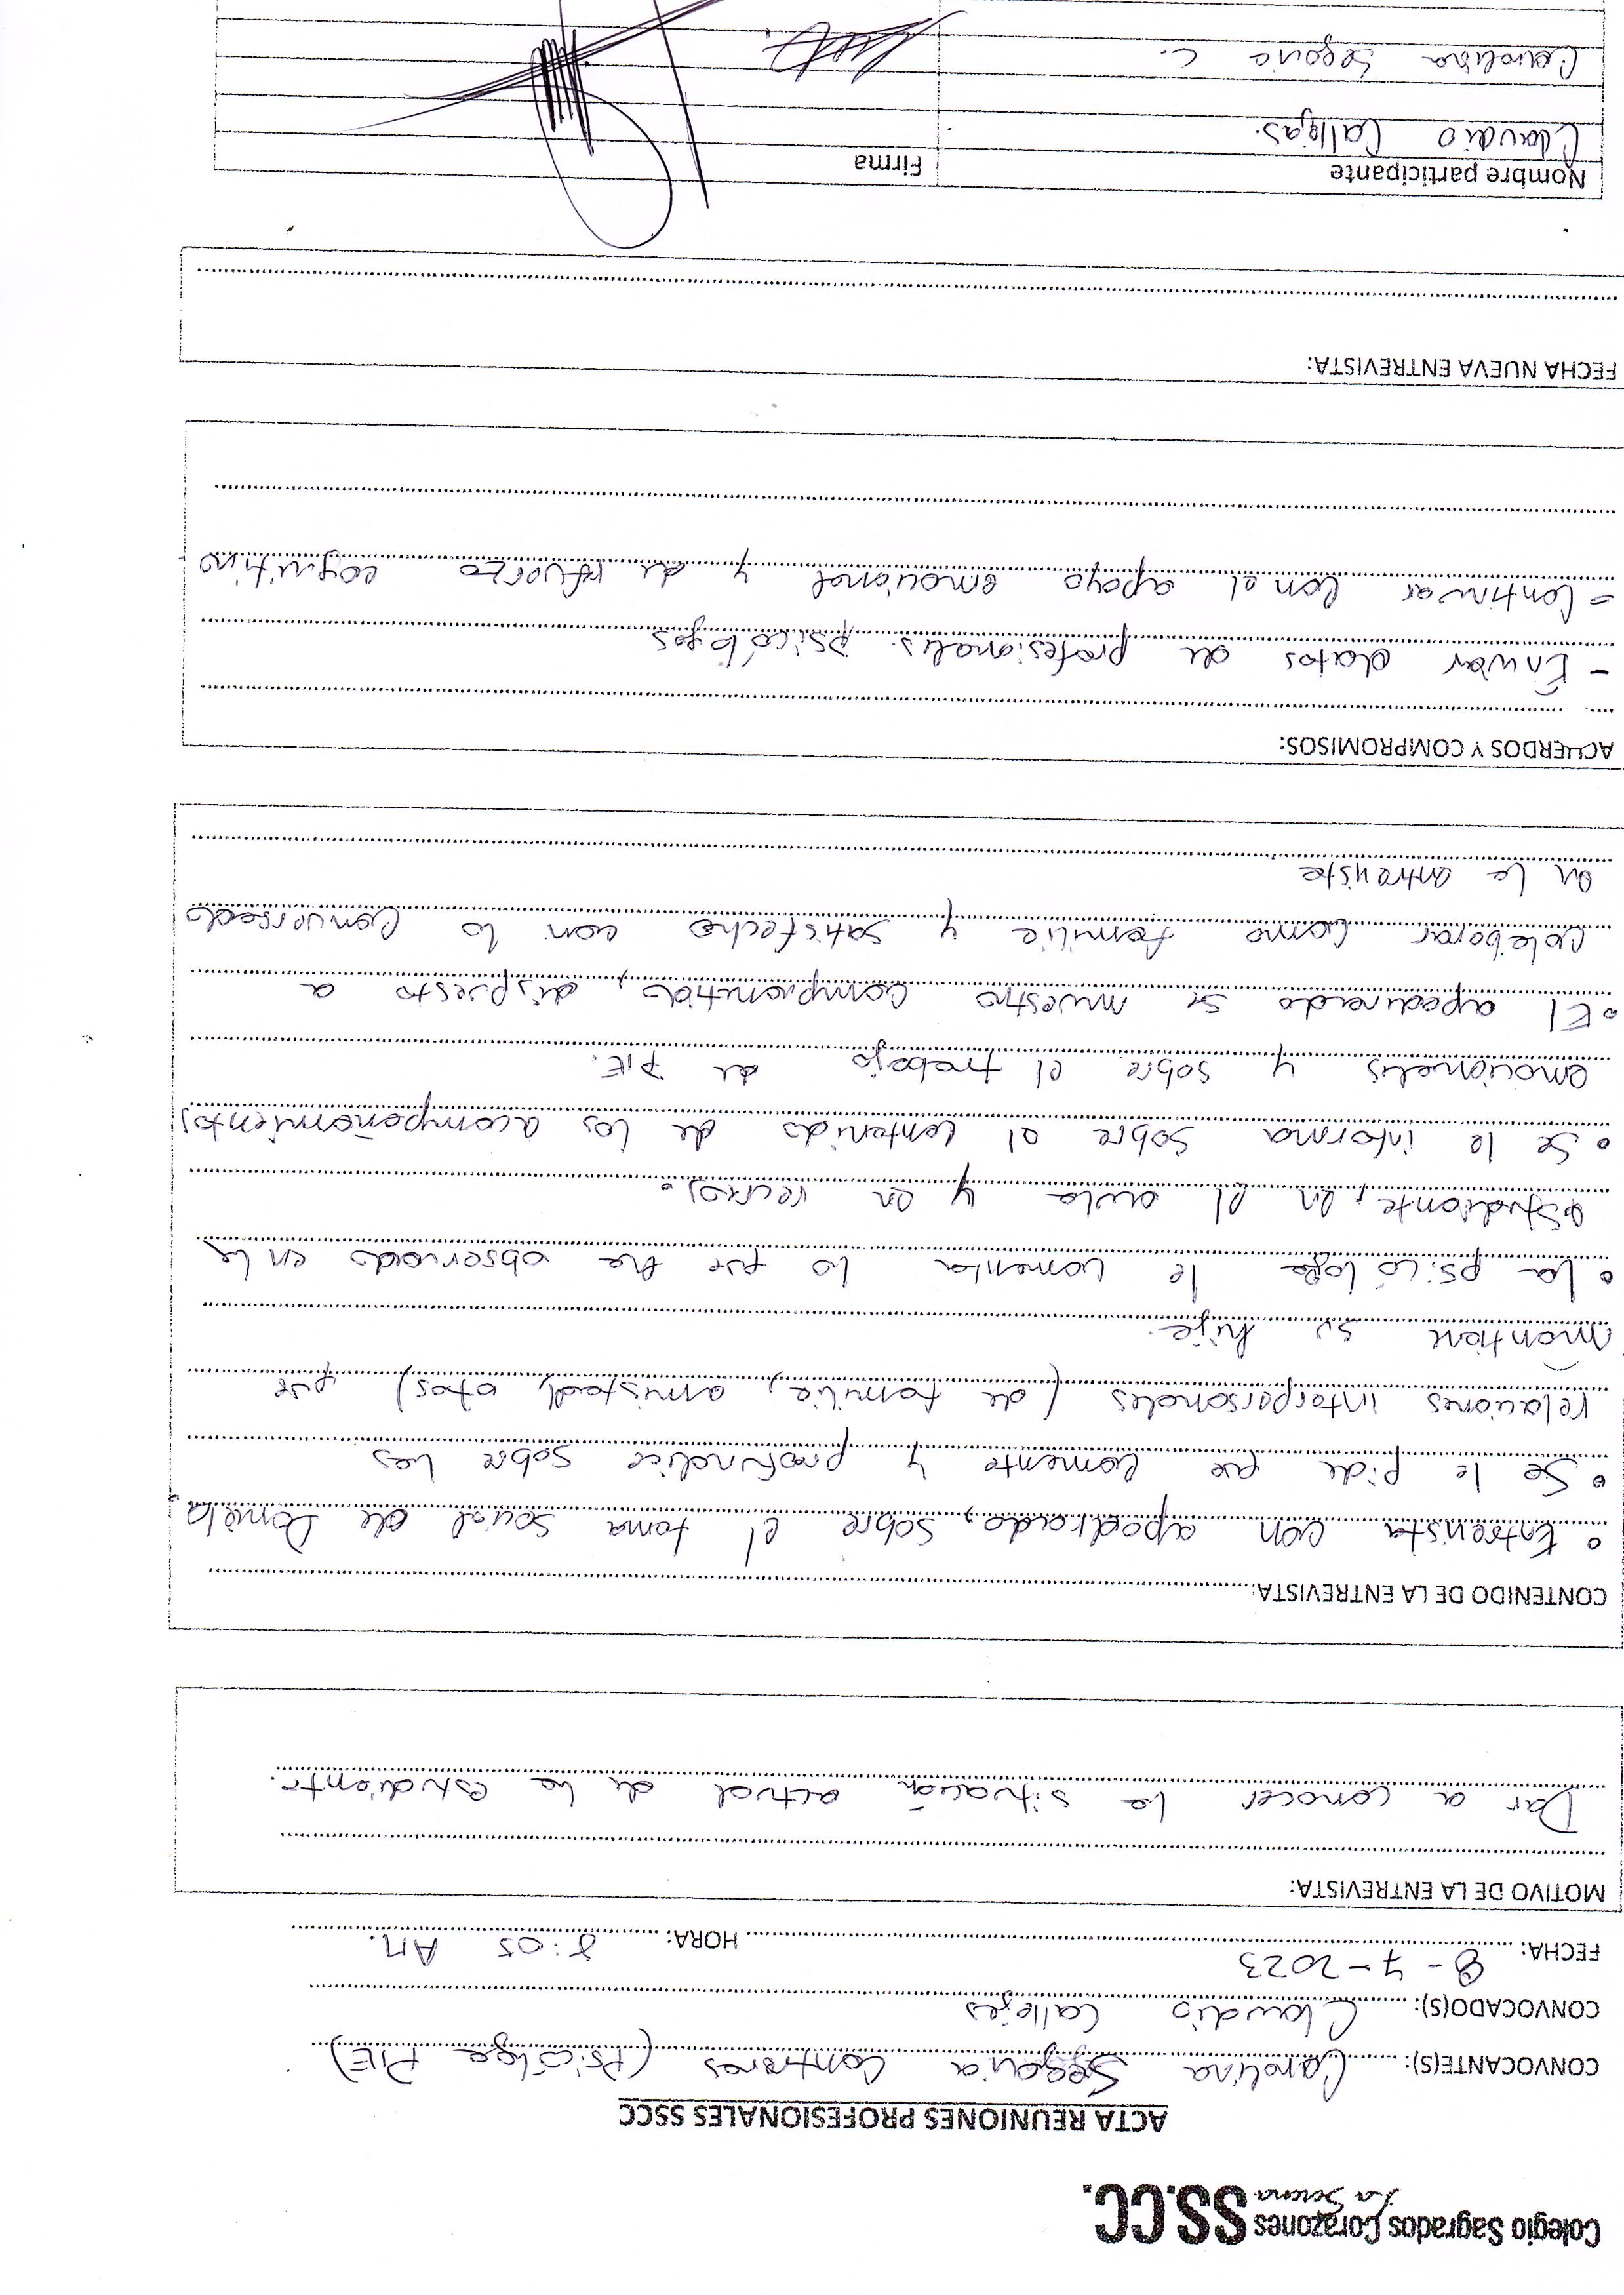 Colegio Sagrados Corazones SS.CC.
La Serena
ACTA REUNIONES PROFESIONALES SSCC
CONVOCANTE(S): Carolina Segovia Contreras (Psicóloga PIE)
CONVOCADO(S): Claudio Callejas
FECHA: 8-7-2023 HORA: 8:05 AM.
MOTIVO DE LA ENTREVISTA:
Dar a conocer la situación actual de la estudiante.
CONTENIDO DE LA ENTREVISTA:
• Entrevista con apoderado, sobre el tema social de Daniela.
• Se le pide que comente y profundice sobre las
relaciones interpersonales (de familia, amistad, otos) que
mantiene su hija.
• La psicóloga le comenta lo que ha observado en la
estudiante, en el aula y en recreos.
• Se le informa sobre el contenido de los acompañamientos
emocionales y sobre el trabajo de PIE.
• El apoderado se muestra comprometido, dispuesto a
colaborar como familia y satisfecho con lo conversado
en la entrevista
ACUERDOS Y COMPROMISOS:
- Enviar datos de profesionales psicólogos
- Continuar con el apoyo emocional y de refuerzo cognitivo
FECHA NUEVA ENTREVISTA:
Nombre participante Firma
Claudio Callejas.
Carolina Segovia C.